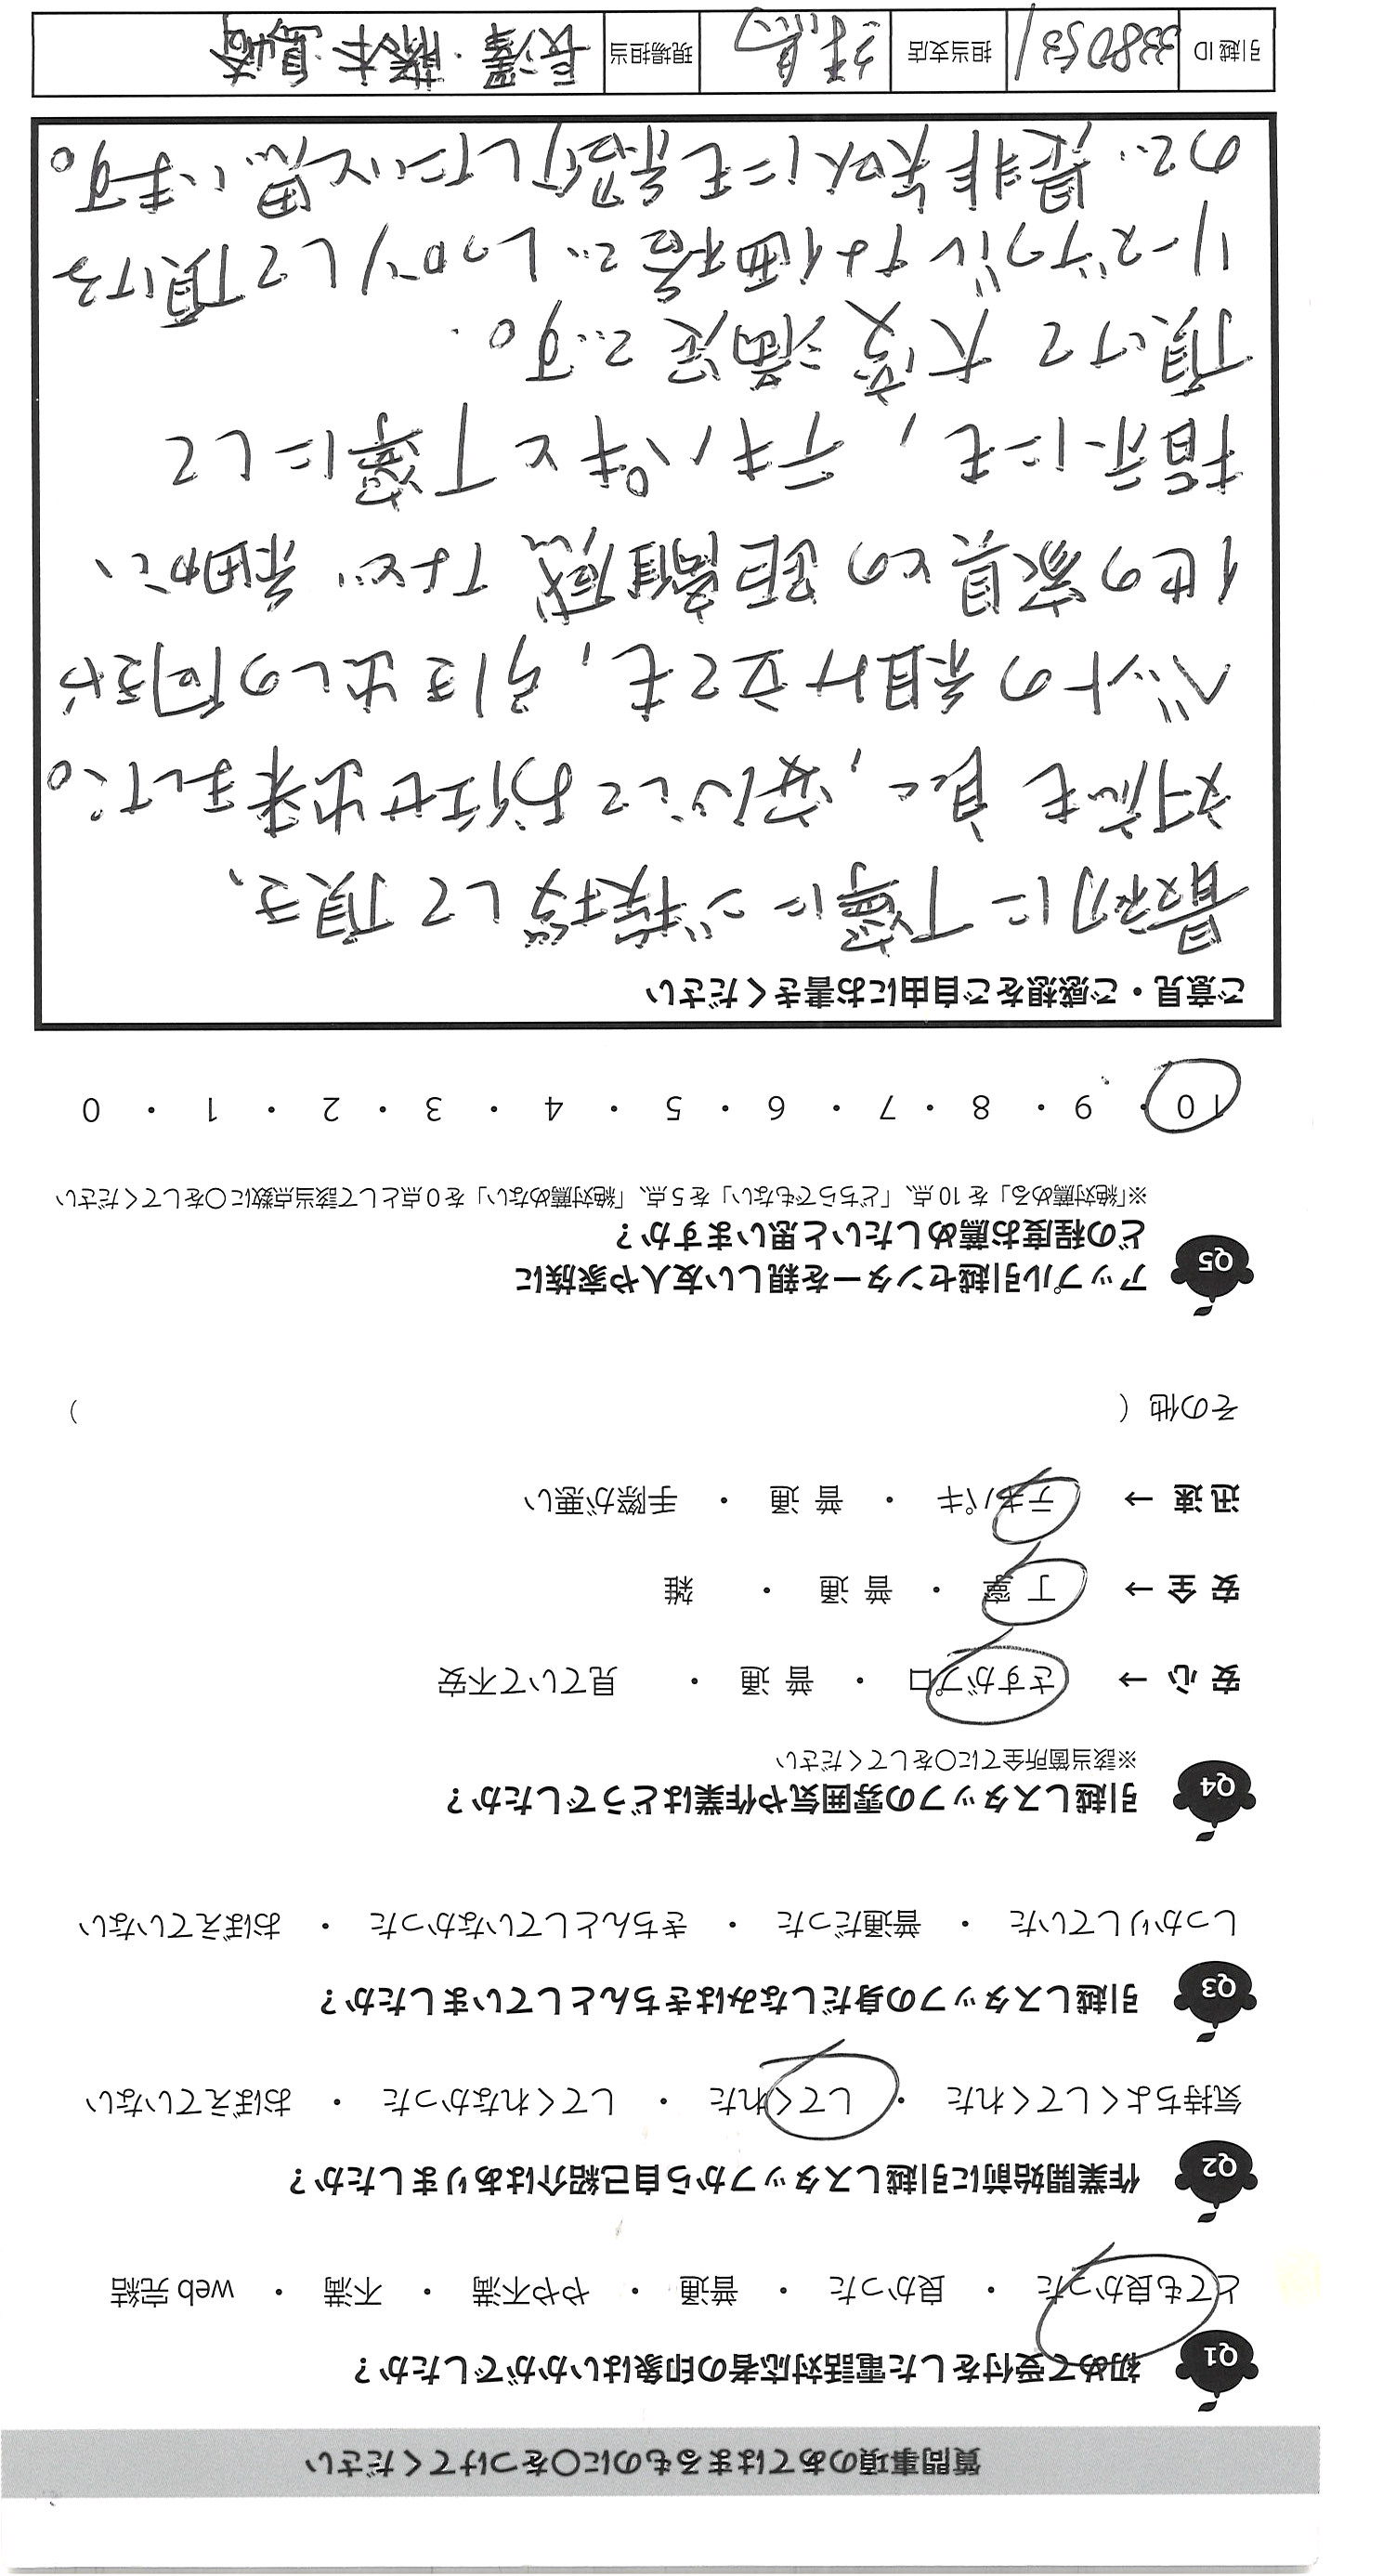 質問事項のあてはまるものに○をつけてください
Q1 初めて受付をした電話対応者の印象はいかがでしたか？
とても良かった ・ 良かった ・ 普通 ・ やや不満 ・ 不満 ・ web 完結
Q2 作業開始前に引越しスタッフから自己紹介はありましたか？
気持ちよくしてくれた ・ してくれた ・ してくれなかった ・ おぼえていない
Q3 引越しスタッフの身だしなみはきちんとしていましたか？
しっかりしていた ・ 普通だった ・ きちんとしていなかった ・ おぼえていない
Q4 引越しスタッフの雰囲気や作業はどうでしたか？
※該当箇所全てに○をしてください
安 心 → さすがプロ ・ 普 通 ・ 見ていて不安
安 全 → 丁 寧 ・ 普 通 ・ 雑
迅 速 → テキパキ ・ 普 通 ・ 手際が悪い
その他（ ）
Q5 アップル引越センターを親しい友人や家族に
どの程度お薦めしたいと思いますか？
※「絶対薦める」を 10 点、「どちらでもない」を 5 点、「絶対薦めない」を 0 点として該当点数に○をしてください
10 ・ 9 ・ 8 ・ 7 ・ 6 ・ 5 ・ 4 ・ 3 ・ 2 ・ 1 ・ 0
ご意見・ご感想をご自由にお書きください
最初に丁寧にご挨拶して頂き、
対応も良く, 安心してお任せ出来ました。
ベットの組み立ても, 引き出しの向きや
他の家具との距離感など 細かい
指示にも, テキパキと丁寧にして
頂けて大変満足です。
リーズナブルな価格でしっかりして頂ける
ので、是非知人にも紹介したいと思います。
引越 ID 3380531 担当支店 現場担当 長澤・藤本・島崎